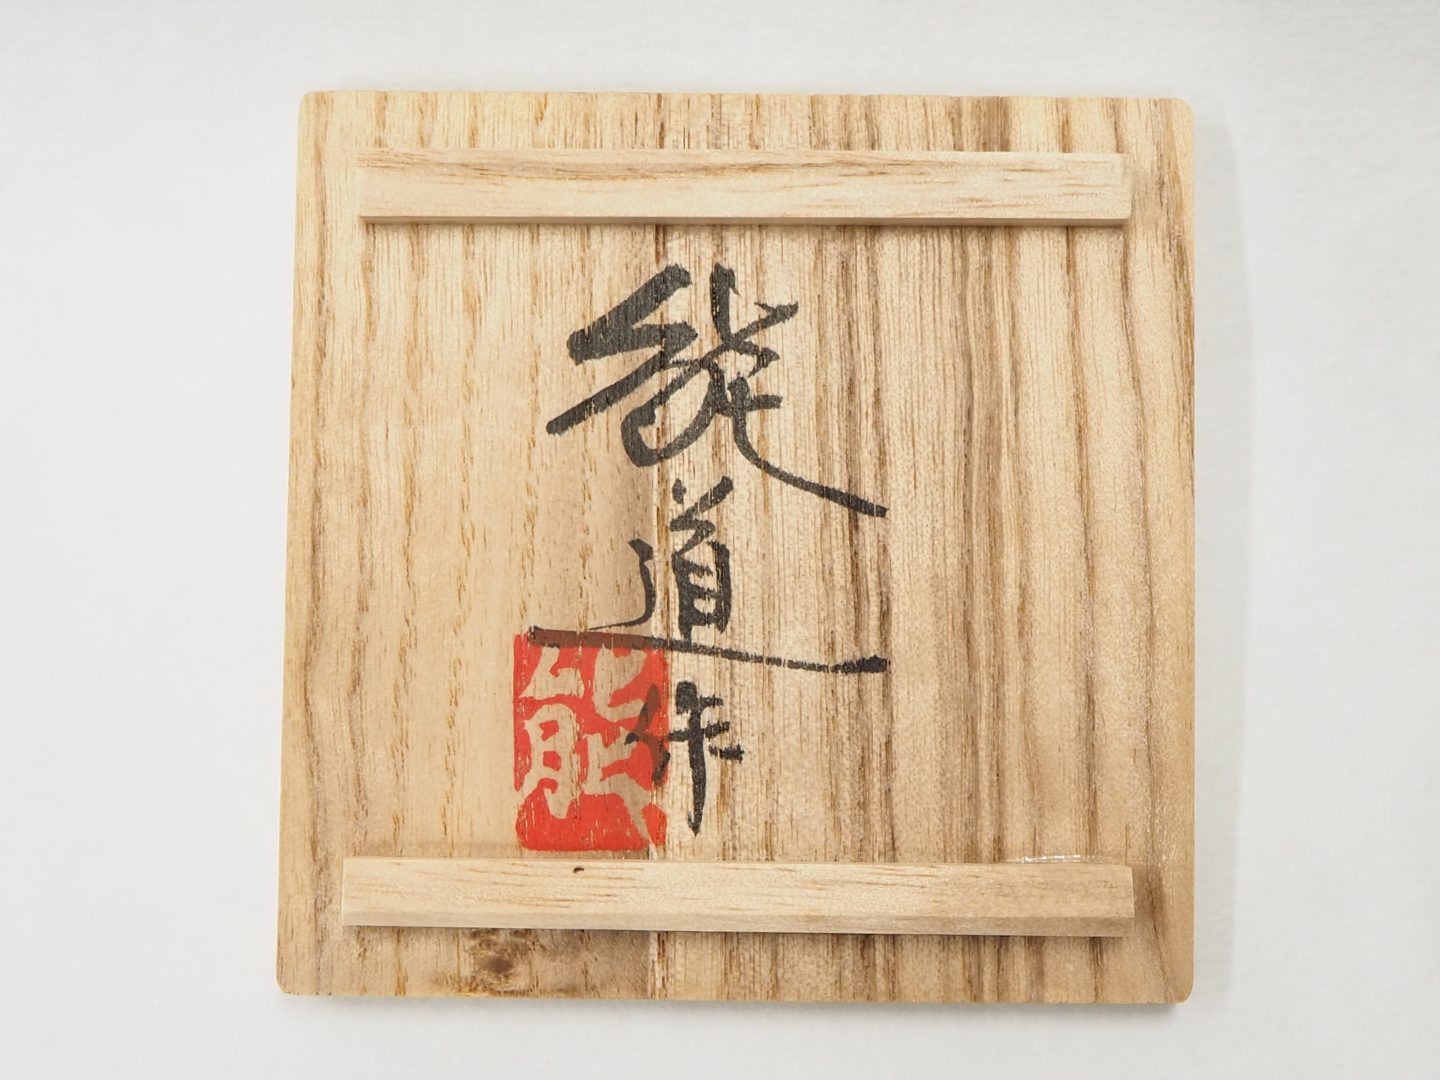 能道作
能